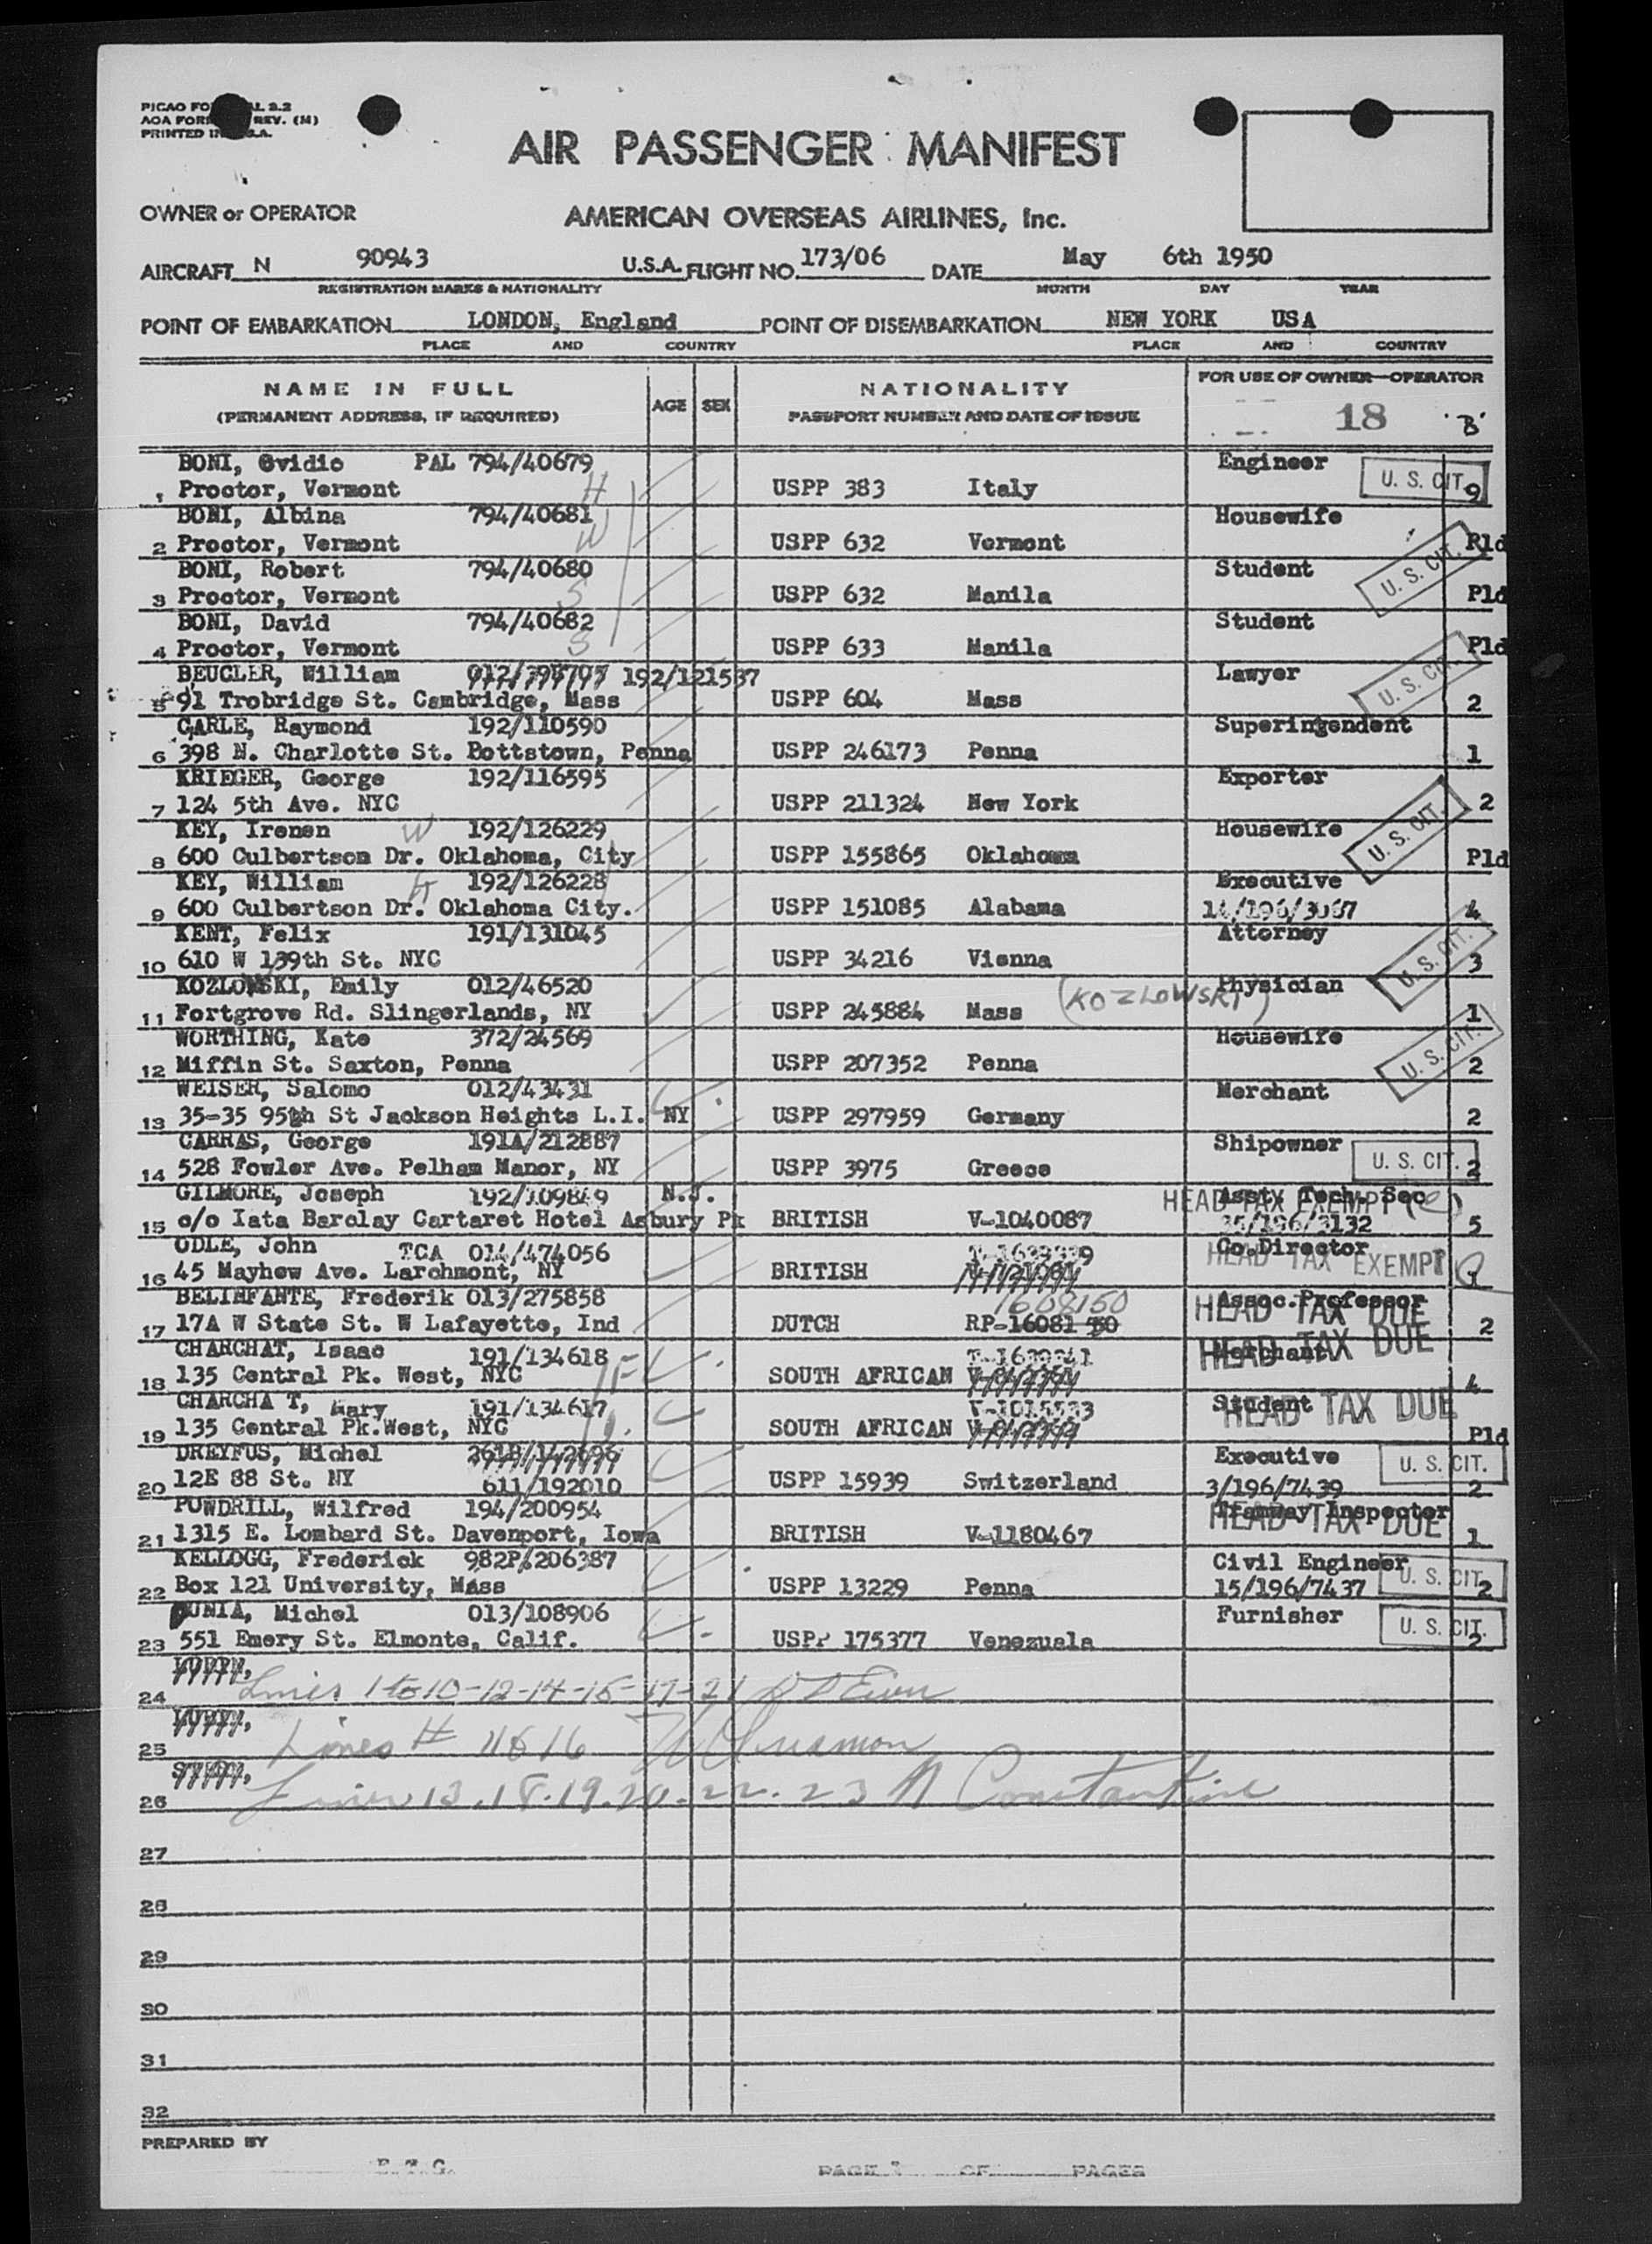 AIR PASSENGER MANIFEST
OWNER or OPERATOR AMERICAN OVERSEAS AIRLINES, Inc.
AIRCRAFT N 90943 U.S.A. FLIGHT NO. 173/06 DATE May 6th 1950
REGISTRATION MARKS & NATIONALITY MONTH DAY YEAR
POINT OF EMBARKATION LONDON, England POINT OF DISEMBARKATION NEW YORK USA
PLACE AND COUNTRY PLACE AND COUNTRY
NAME IN FULL AGE SEX NATIONALITY FOR USE OF OWNER—OPERATOR
(PERMANENT ADDRESS, IF REQUIRED) PASSPORT NUMBER AND DATE OF ISSUE 18 'B'
BONI, Ovidio PAL 794/40679 Engineer U. S. CIT.
1 Proctor, Vermont H USPP 383 Italy 9
BONI, Albina 794/40681 Housewife
2 Proctor, Vermont W USPP 632 Vermont Pld
BONI, Robert 794/40680 Student U. S. CIT.
3 Proctor, Vermont S USPP 632 Manila Pld
BONI, David 794/40682 Student
4 Proctor, Vermont S USPP 633 Manila Pld
BEUCLER, William 192/121587 Lawyer U. S. CIT.
5 91 Trobridge St. Cambridge, Mass USPP 604 Mass 2
CARLE, Raymond 192/110590 Superintendent
6 398 N. Charlotte St. Pottstown, Penna USPP 246173 Penna 1
KRIEGER, George 192/116595 Exporter
7 124 5th Ave. NYC USPP 211324 New York 2
KEY, Irenen W 192/126229 Housewife U. S. CIT.
8 600 Culbertson Dr. Oklahoma, City USPP 155865 Oklahoma Pld
KEY, William H 192/126228 Executive
9 600 Culbertson Dr. Oklahoma City. USPP 151085 Alabama 14/196/3067 4
KENT, Felix 191/131045 Attorney U. S. CIT.
10 610 W 139th St. NYC USPP 34216 Vienna 3
KOZLOWSKI, Emily 012/46520 (KOZLOWSKI) Physician
11 Fortgrove Rd. Slingerlands, NY USPP 245884 Mass 1
WORTHING, Kate 372/24569 Housewife U. S. CIT.
12 Miffin St. Saxton, Penna USPP 207352 Penna 2
WEISER, Salomo 012/43431 Merchant
13 35-35 95th St Jackson Heights L.I. NY USPP 297959 Germany 2
CARRAS, George 191A/212887 Shipowner U. S. CIT.
14 528 Fowler Ave. Pelham Manor, NY USPP 3975 Greece 2
GILMORE, Joseph 192/109849 N.J. HEAD TAX EXEMPT Asst. Tech. Sec
15 c/o Iata Barclay Cartaret Hotel Asbury Pk BRITISH V-1040087 /196/3132 5
ODLE, John TCA 014/474056 Co.Director
16 45 Mayhew Ave. Larchmont, NY BRITISH HEAD TAX EXEMPT 1
BELINFANTE, Frederik 013/275858 1608150 Assoc.Professor HEAD TAX DUE
17 17A W State St. W Lafayette, Ind DUTCH RP-16081 50 2
CHARCHAT, Isaac 191/134618 Merchant HEAD TAX DUE
18 135 Central Pk. West, NYC SOUTH AFRICAN 4
CHARCHA T, Mary 191/134617 Student HEAD TAX DUE
19 135 Central Pk.West, NYC SOUTH AFRICAN Pld
DREYFUS, Michel Executive U. S. CIT.
20 12E 88 St. NY 611/192010 USPP 15939 Switzerland 3/196/7439 2
POWDRILL, Wilfred 194/200954 Tramway Inspector HEAD TAX DUE
21 1315 E. Lombard St. Davenport, Iowa BRITISH V-1180467 1
KELLOGG, Frederick 982P/206387 Civil Engineer U. S. CIT.
22 Box 121 University, Mass USPP 13229 Penna 15/196/7437 2
DUNIA, Michel 013/108906 Furnisher U. S. CIT.
23 551 Emery St. Elmonte, Calif. USPP 175377 Venezuela 2
24 Lines 1 to 10-12-14-15-17-21
25 Lines # 11 & 16
26 Lines 13.18.19.20.22.23 Constantine
27
28
29
30
31
32
PREPARED BY
PAGE OF PAGES